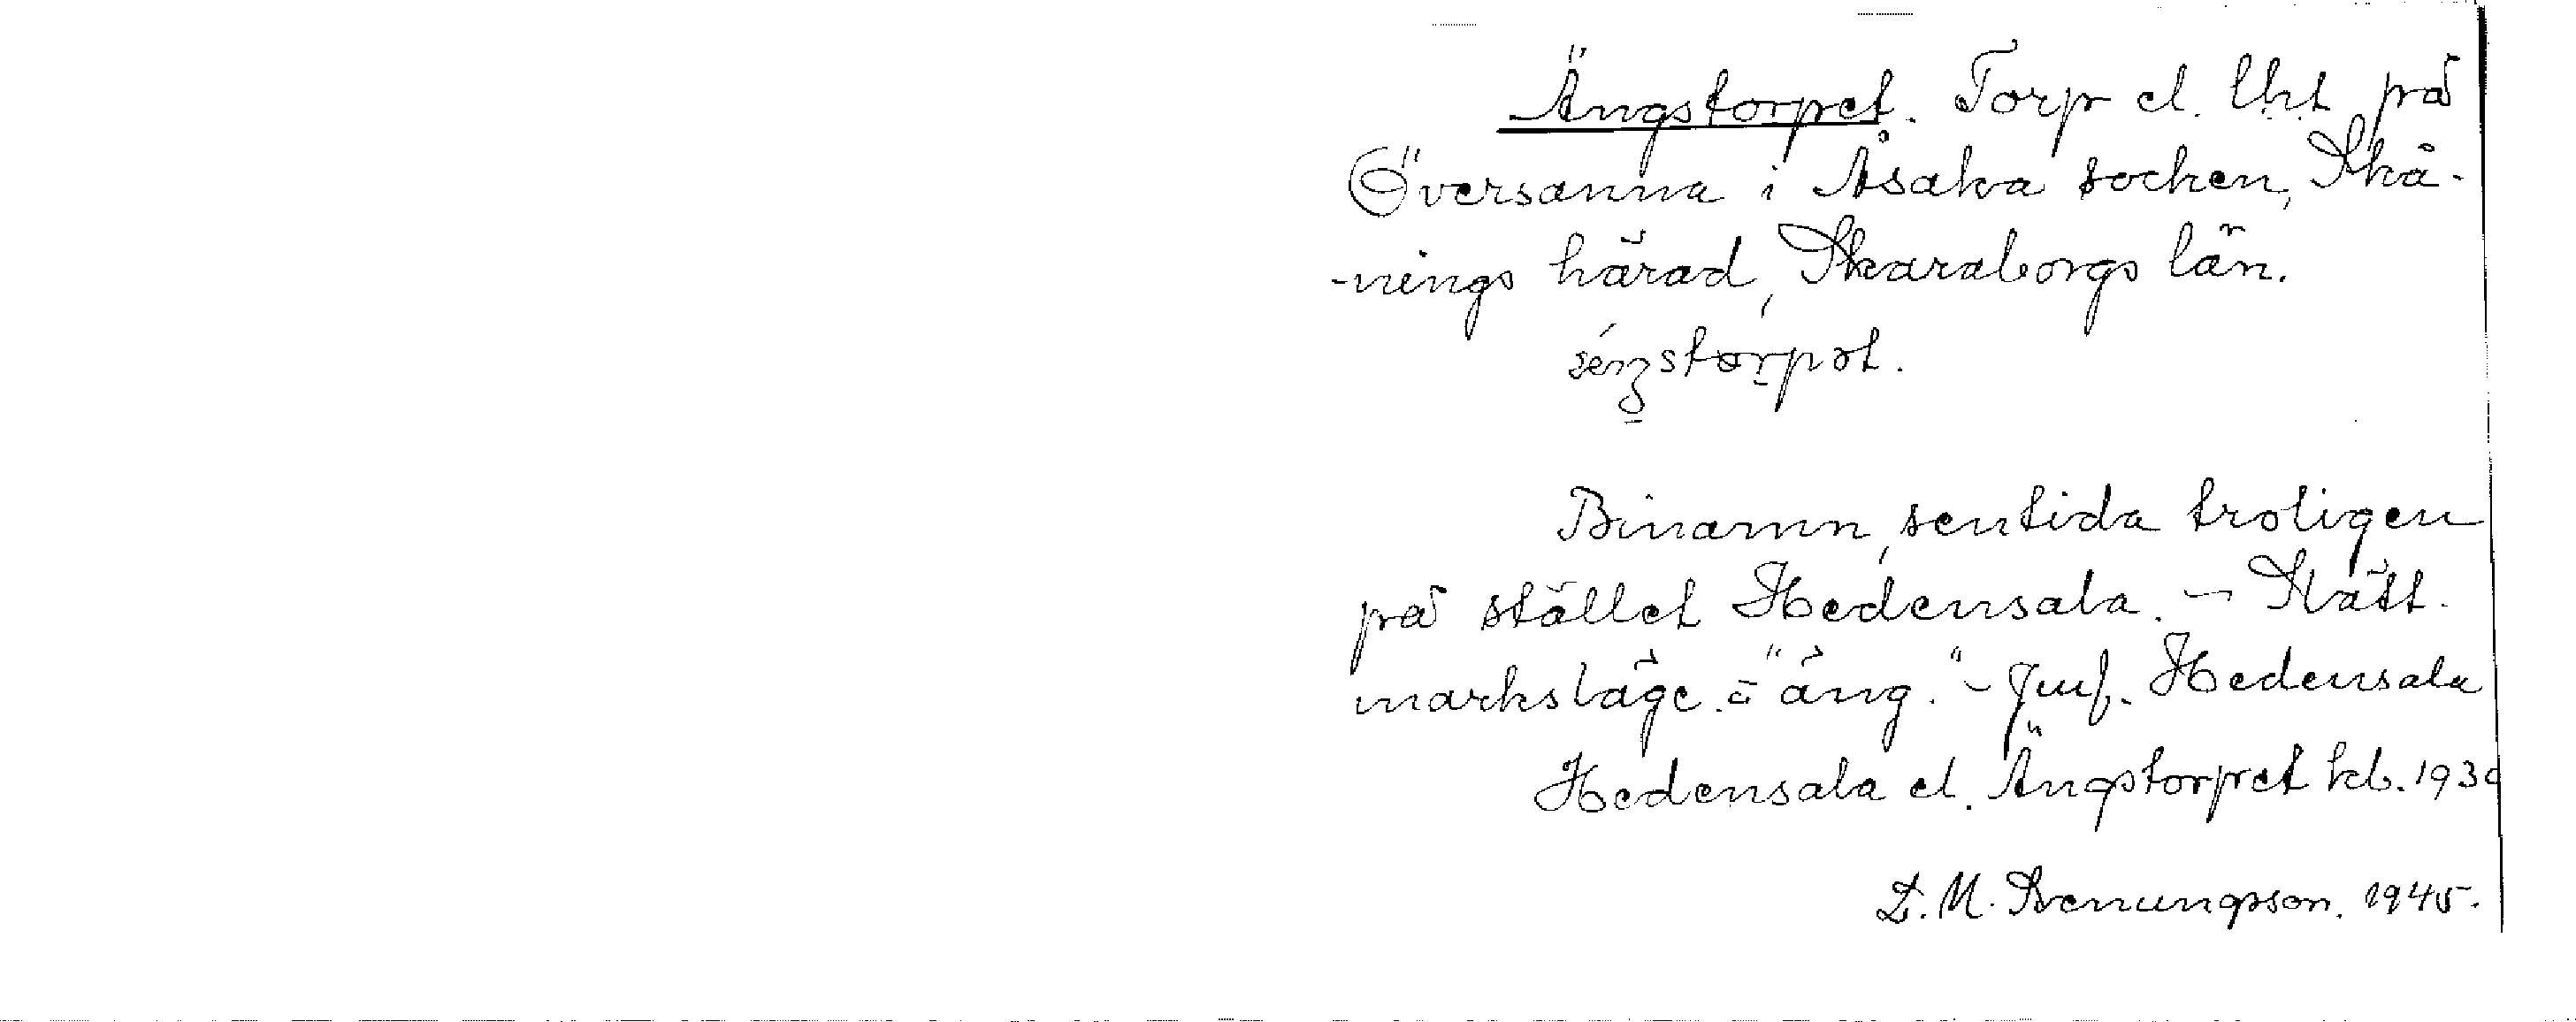 Ängstorpet. Torp el. lht på
Översanna i Åsaka socken, Skå-
-nings härad, Skaraborgs län.
Binamn, sentida troligen
på stället Hedensala. - Slätt-
marksläge. = "äng." - Jmf. Hedensala
Hedensala el. Ängstorpet kb. 1930
D. M. Svenungsson. 1945.